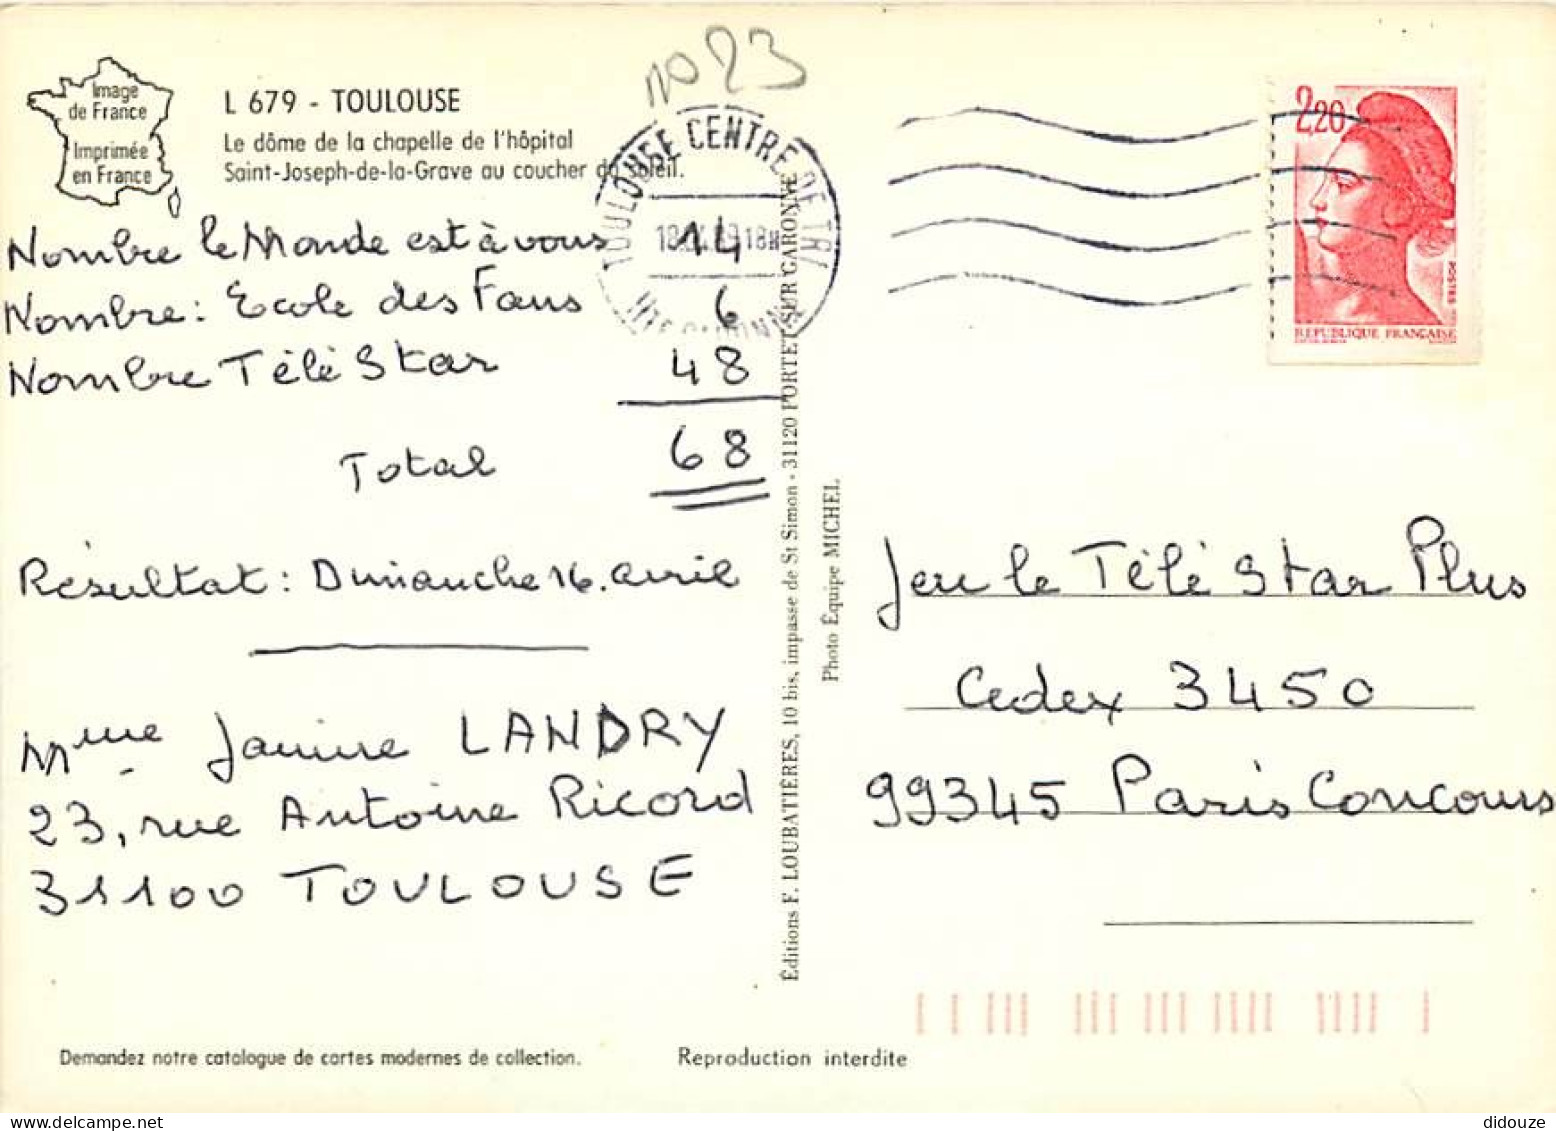 n° 23
Image
de France
Imprimée
en France
L 679 - TOULOUSE
Le dôme de la chapelle de l'hôpital
Saint-Joseph-de-la-Grave au coucher du soleil.
TOULOUSE CENTRE DE TRI
18H
Nombre le Monde est à vous 14
Nombre : Ecole des Fans 6
Nombre Télé Star 48
Total 68
Résultat : Dimanche 16. avril
Mme Janine LANDRY
23, rue Antoine Ricord
31100 TOULOUSE
Éditions F. LOUBATIÈRES, 10 bis, impasse de St Simon - 31120 PORTET SUR GARONNE
Photo Équipe MICHEL
2,20
POSTES
REPUBLIQUE FRANÇAISE
Jeu le Télé Star Plus
Cedex 3450
99345 Paris Concours
Demandez notre catalogue de cartes modernes de collection.
Reproduction interdite
didouze